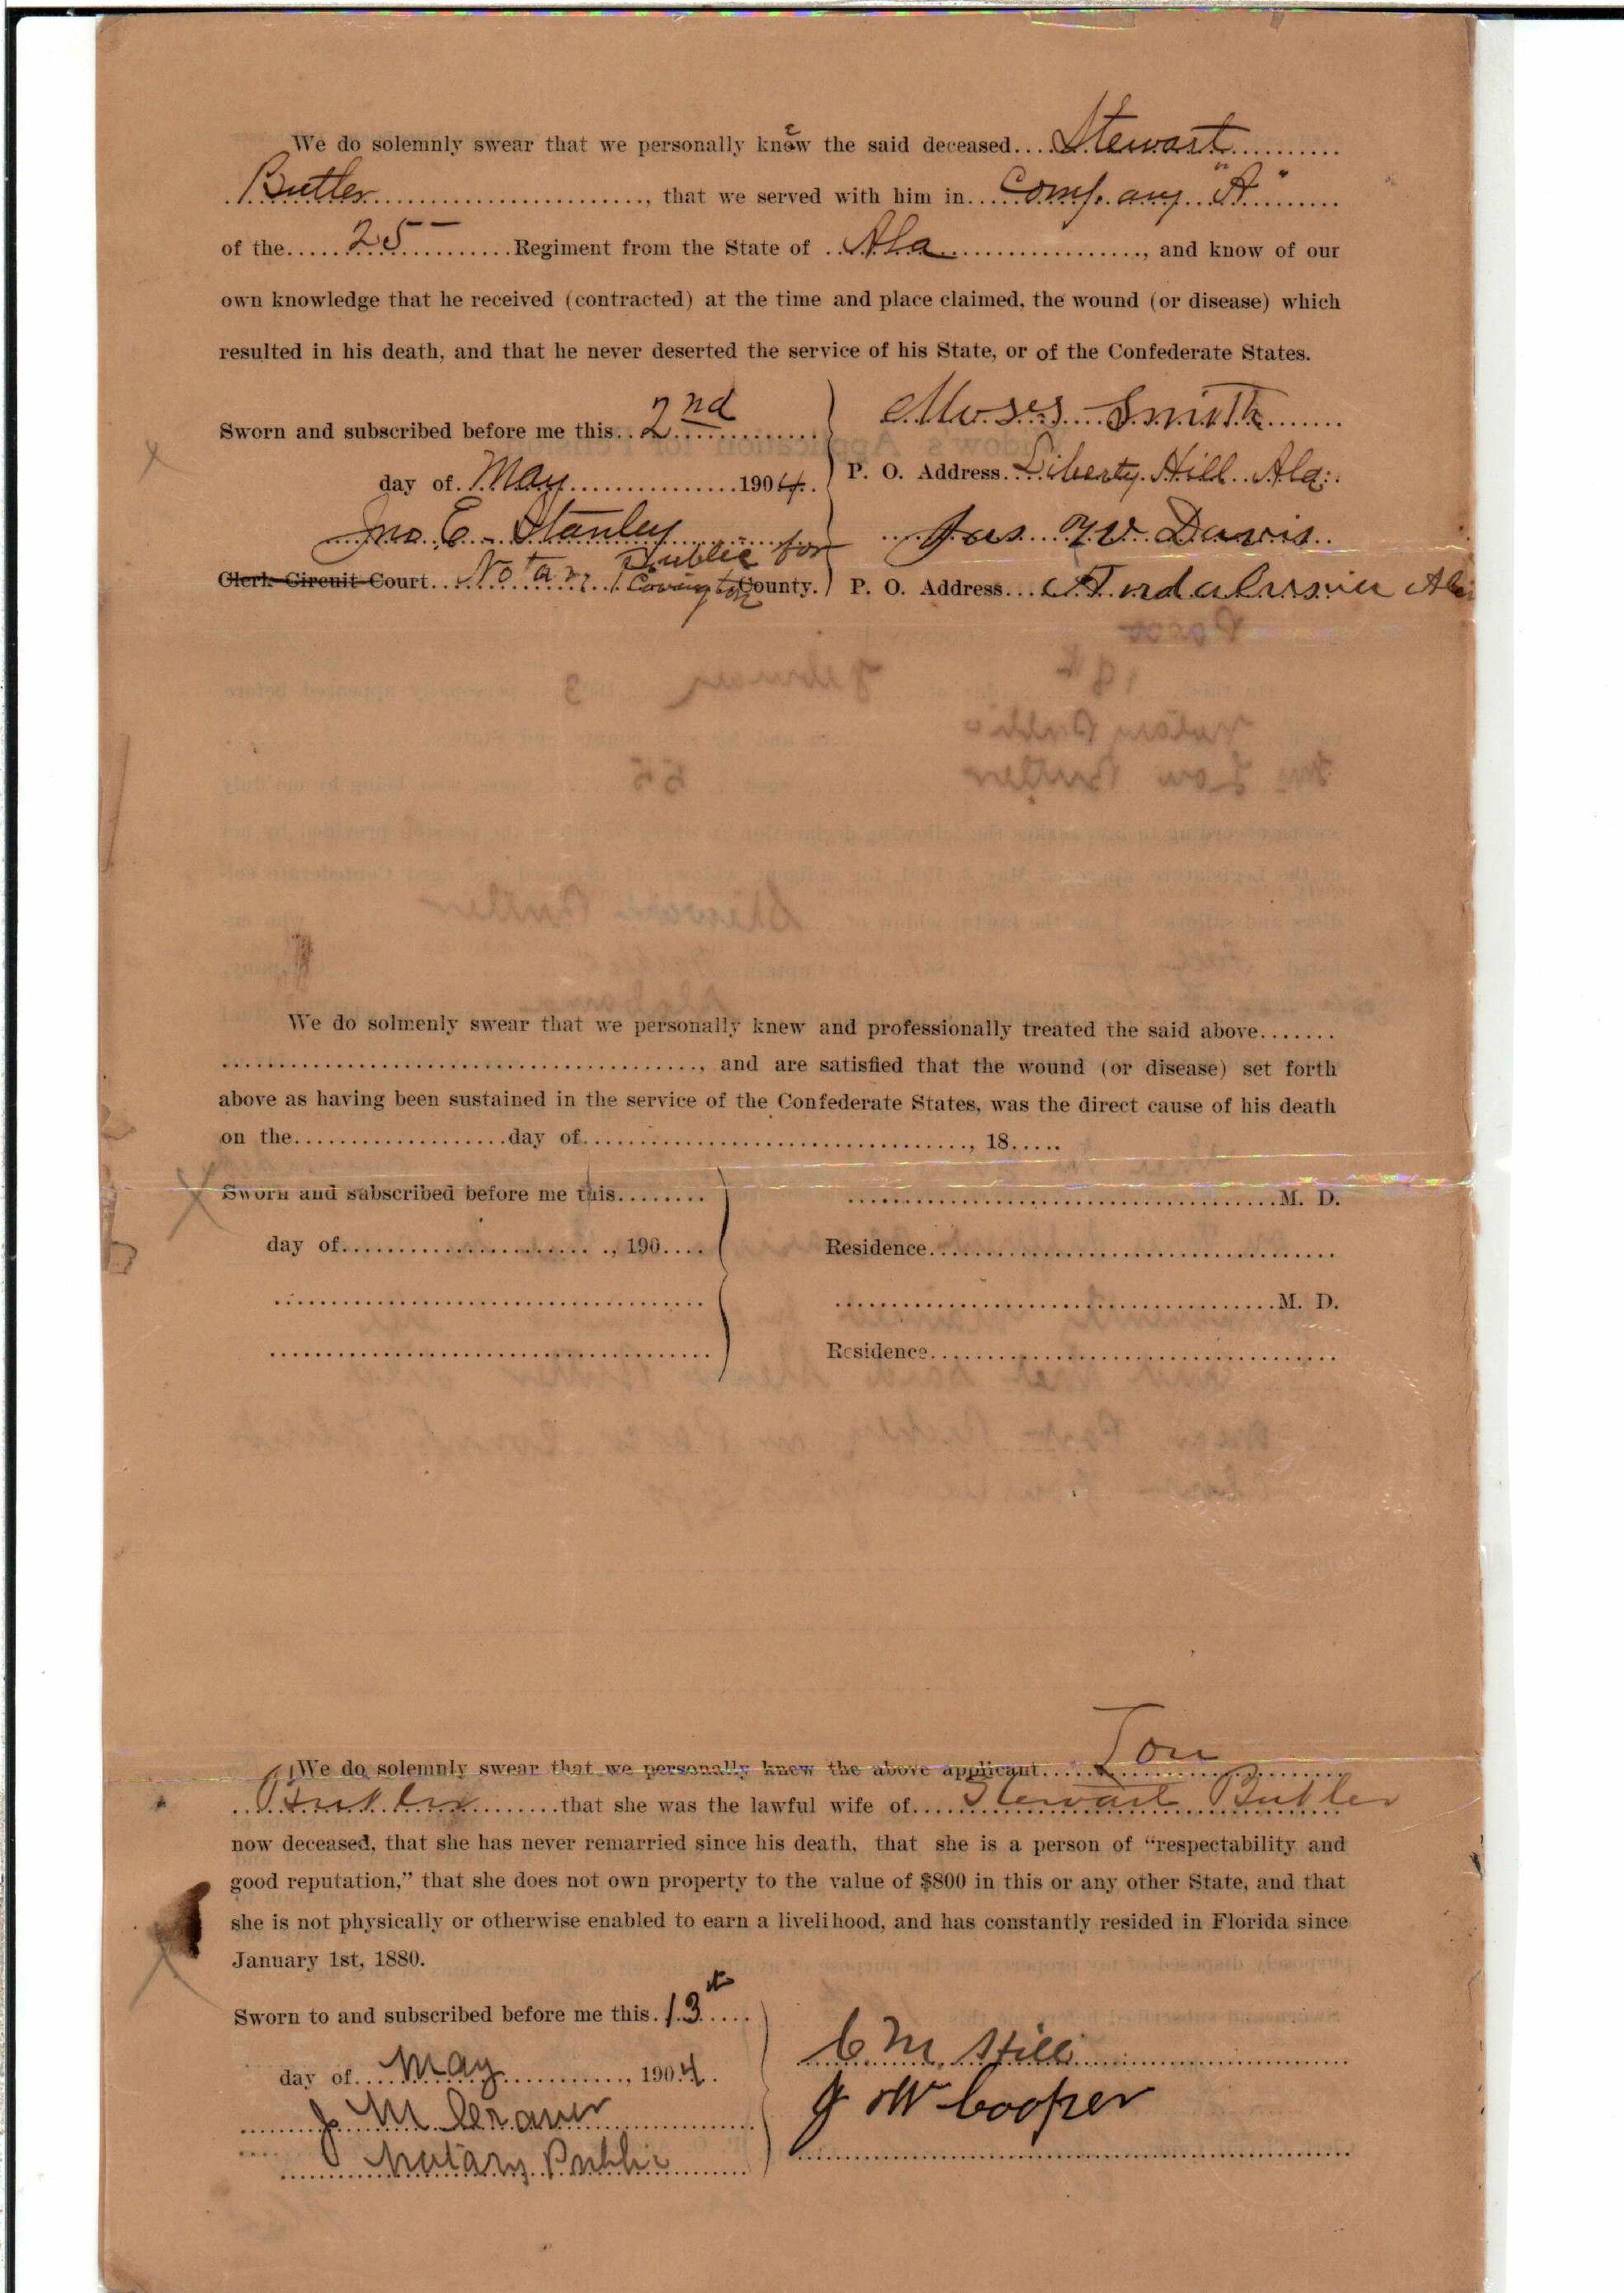 We do solemnly swear that we personally knew the said deceased....Stewart..........
Butler............................, that we served with him in....Company "A"......
of the.....25..........Regiment from the State of ..Ala.................., and know of our
own knowledge that he received (contracted) at the time and place claimed, the wound (or disease) which
resulted in his death, and that he never deserted the service of his State, or of the Confederate States.
Sworn and subscribed before me this..2nd............
day of.May.................1904.
Jno E. Stanley
Clerk Circuit Court...Notary Public for Covington County.
Moses Smith
P. O. Address...Liberty Hill Ala.
Jas. W Davis
P. O. Address...Andalusia Ala
We do solmenly swear that we personally knew and professionally treated the said above.......
........................................., and are satisfied that the wound (or disease) set forth
above as having been sustained in the service of the Confederate States, was the direct cause of his death
on the..................day of................................., 18.....
Sworn and sabscribed before me this........
day of........................, 190....
......................................M. D.
Residence...................................
......................................M. D.
Residence...................................
We do solemnly swear that we personally knew the above applicant.....Lou
Butler.........that she was the lawful wife of....Stewart Butler
now deceased, that she has never remarried since his death, that she is a person of “respectability and
good reputation,” that she does not own property to the value of $800 in this or any other State, and that
she is not physically or otherwise enabled to earn a livelihood, and has constantly resided in Florida since
January 1st, 1880.
Sworn to and subscribed before me this.13th....
day of....May............, 1904.
J M
Notary Public
C. M. Hill
J W Cooper